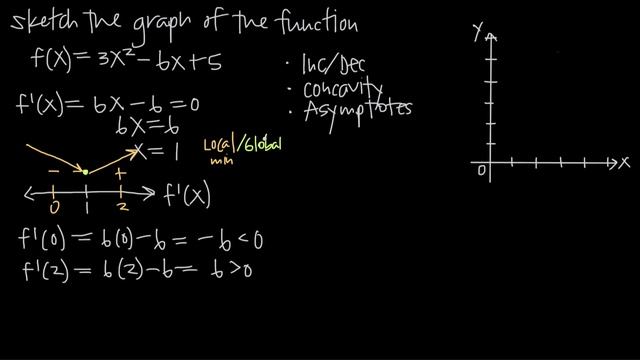 sketch the graph of the function
f(x) = 3x² - 6x + 5
f'(x) = 6x - 6 = 0
6x = 6
x = 1
Local/Global
min
- +
0 1 2
f'(x)
f'(0) = 6(0) - 6 = -6 < 0
f'(2) = 6(2) - 6 = 6 > 0
· Inc/Dec
· concavity
· Asymptotes
Y
0
X